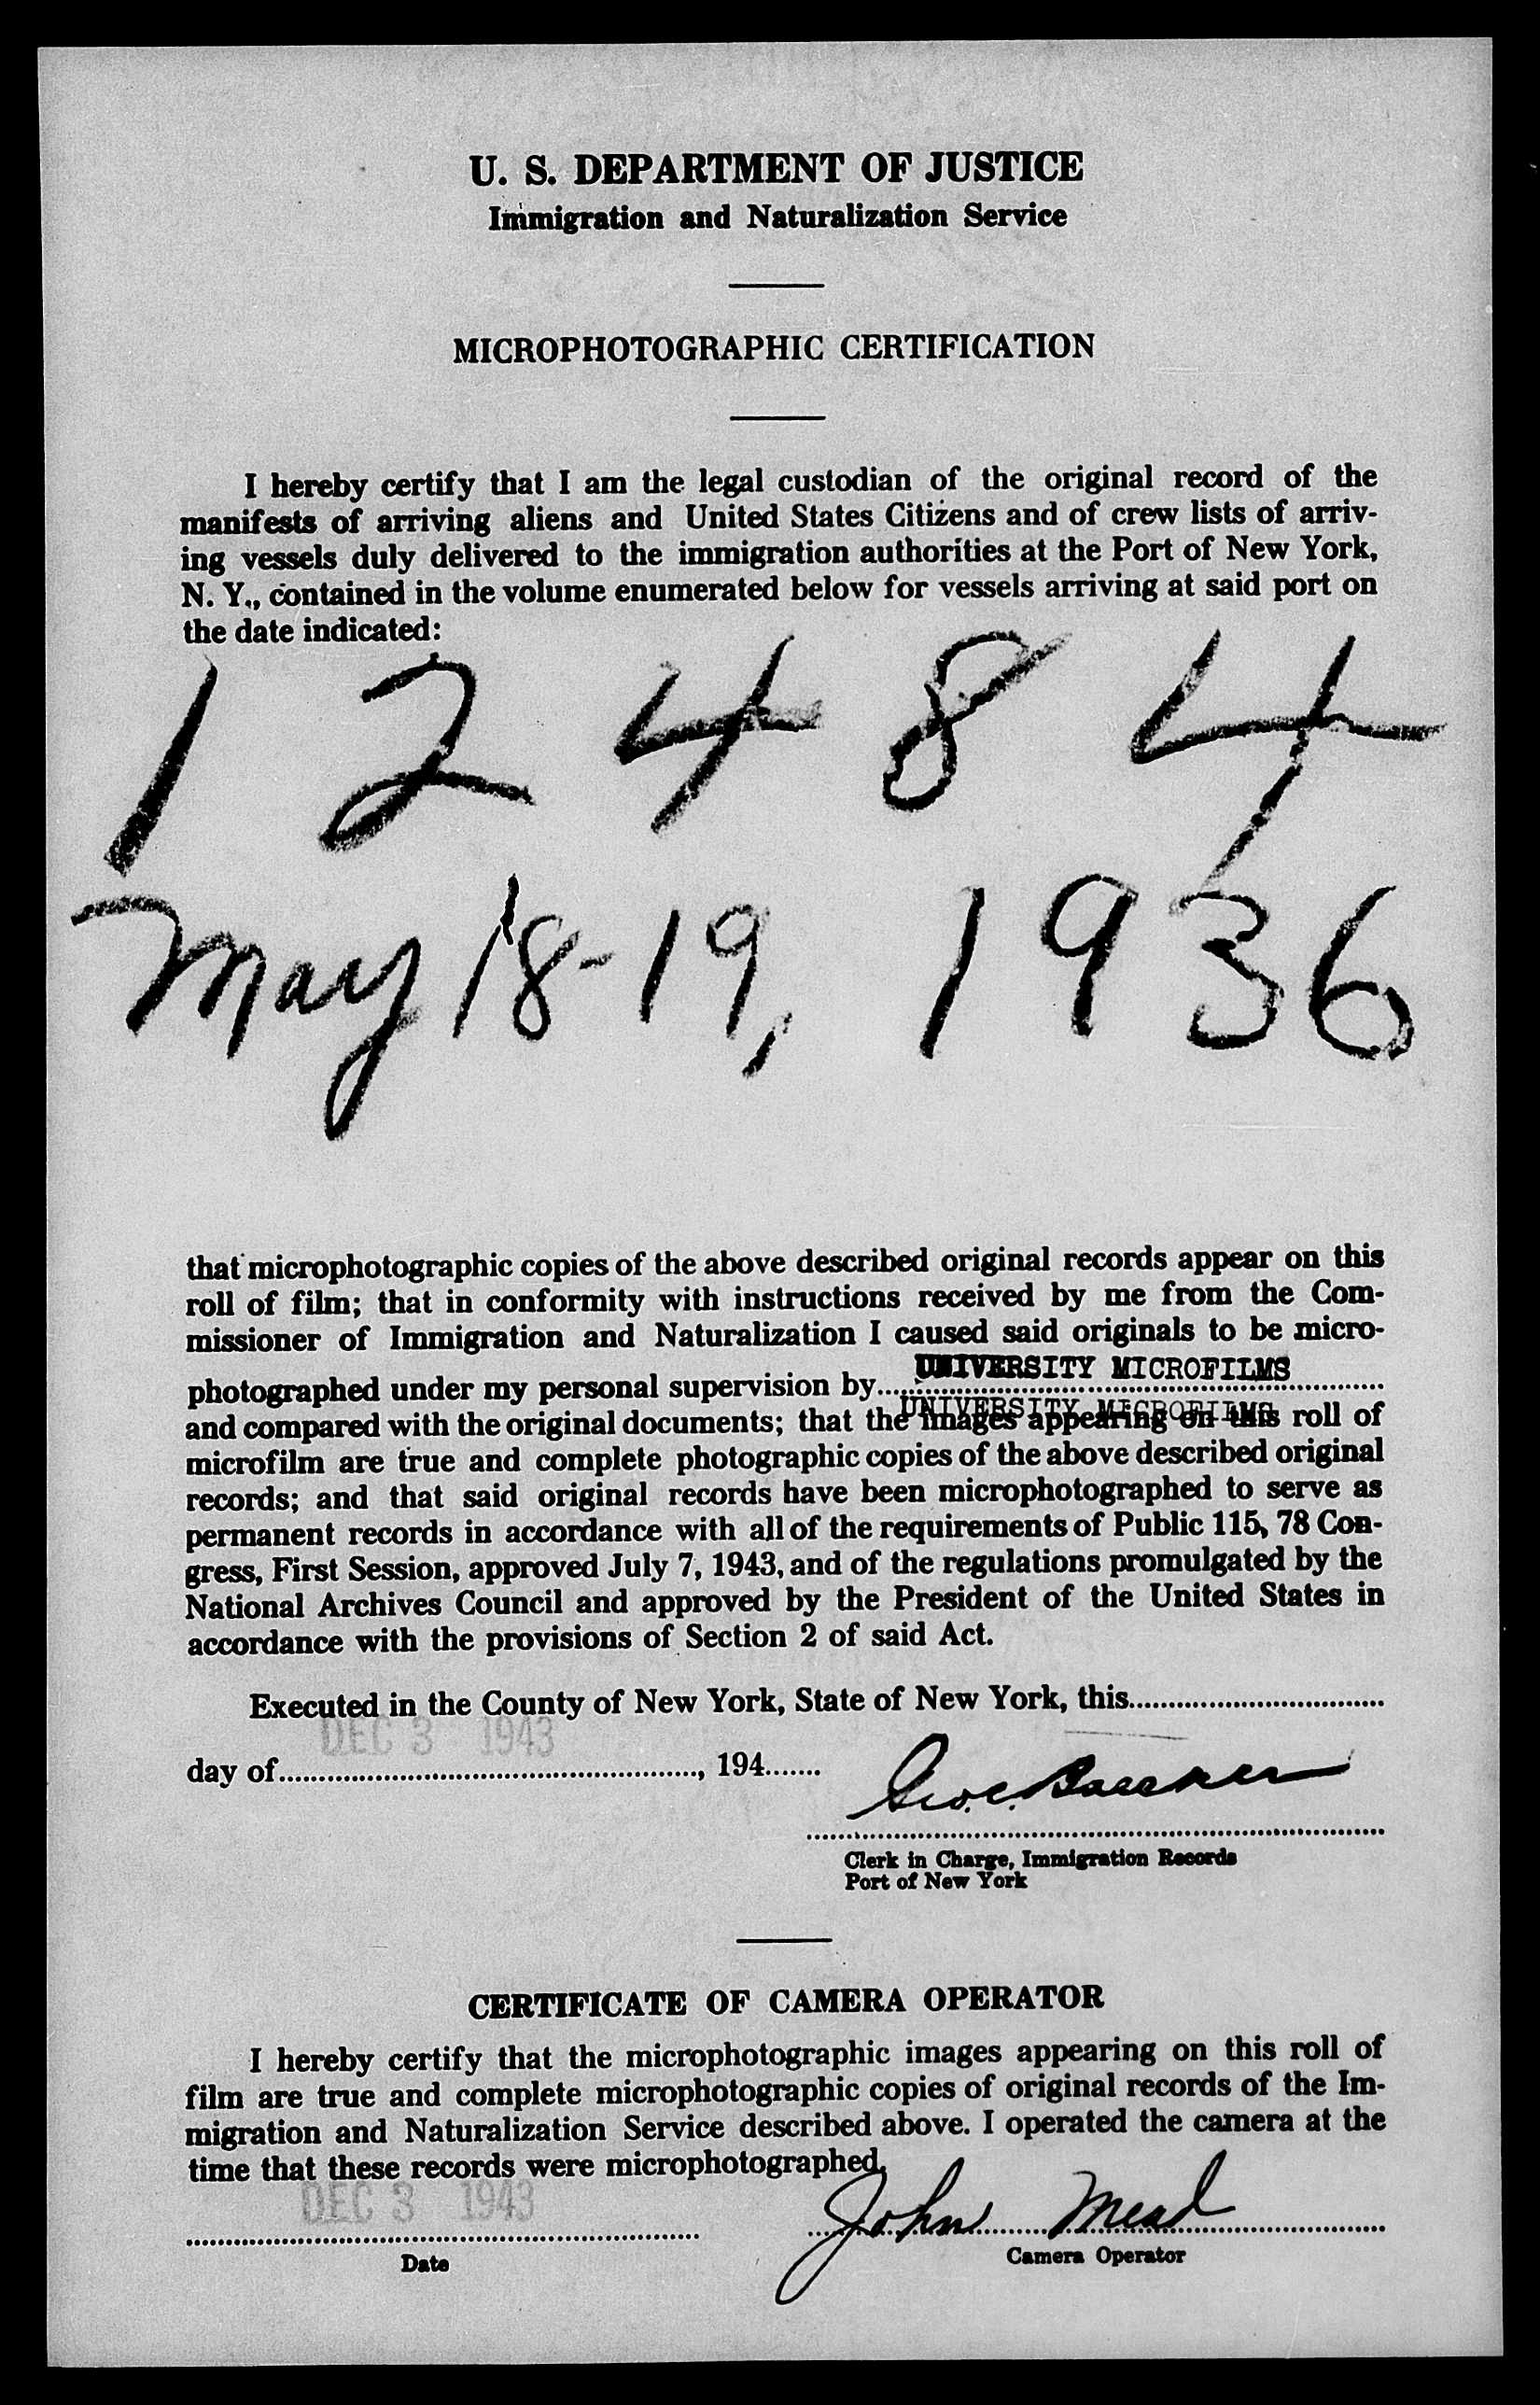 U. S. DEPARTMENT OF JUSTICE
Immigration and Naturalization Service
MICROPHOTOGRAPHIC CERTIFICATION
I hereby certify that I am the legal custodian of the original record of the
manifests of arriving aliens and United States Citizens and of crew lists of arriv-
ing vessels duly delivered to the immigration authorities at the Port of New York,
N. Y., contained in the volume enumerated below for vessels arriving at said port on
the date indicated:
1 2 4 8 4
May 18-19, 1936
that microphotographic copies of the above described original records appear on this
roll of film; that in conformity with instructions received by me from the Com-
missioner of Immigration and Naturalization I caused said originals to be micro-
UNIVERSITY MICROFILMS
photographed under my personal supervision by
UNIVERSITY MICROFILMS
and compared with the original documents; that the images appearing on this roll of
microfilm are true and complete photographic copies of the above described original
records; and that said original records have been microphotographed to serve as
permanent records in accordance with all of the requirements of Public 115, 78 Con-
gress, First Session, approved July 7, 1943, and of the regulations promulgated by the
National Archives Council and approved by the President of the United States in
accordance with the provisions of Section 2 of said Act.
Executed in the County of New York, State of New York, this
DEC 3 1943
day of, 194
Geo. C.
Clerk in Charge, Immigration Records
Port of New York
CERTIFICATE OF CAMERA OPERATOR
I hereby certify that the microphotographic images appearing on this roll of
film are true and complete microphotographic copies of original records of the Im-
migration and Naturalization Service described above. I operated the camera at the
time that these records were microphotographed.
DEC 3 1943
John Mead
Date
Camera Operator